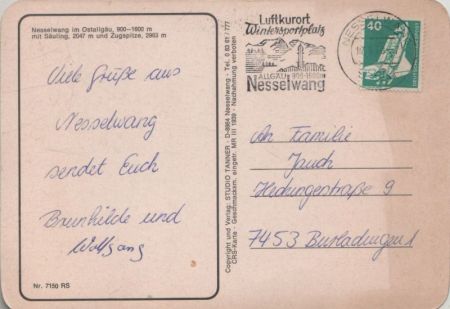 Nesselwang im Ostallgäu, 900-1600 m
mit Säuling, 2047 m und Zugspitze, 2963 m
Viele Grüße aus
Nesselwang
sendet Euch
Brunhilde und
Wolfgang
Nr. 7150 RS
Copyright und Verlag: STUDIO TANNER - D-8964 Nesselwang - Tel. 0 83 61 / 777
CRS-Karte - Geschmacksm. eingetr. MR III 1839 - Nachahmung verboten
Luftkurort
Wintersportplatz
ALLGÄU 900-1600m
Nesselwang
NESSELW
40
An Familie
Jauch
Hechingerstraße 9
7453 Burladingen 1